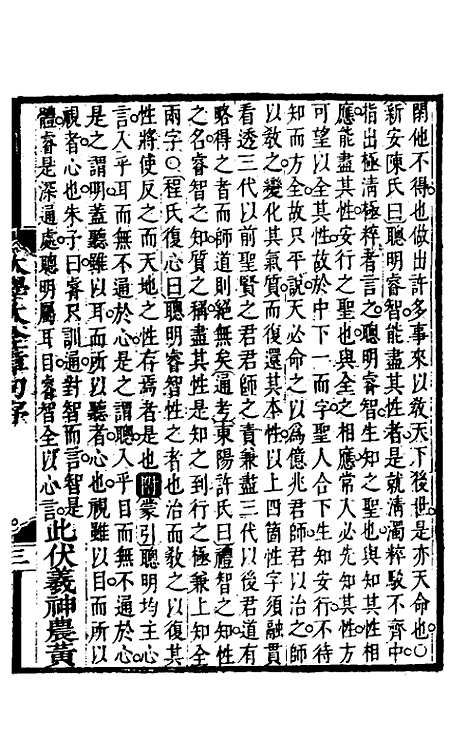 閉他不得也做出許多事來以敎天下後世是亦天命也○
新安陳氏曰聰明睿智能盡其性者是就淸濁粹駁不齊中
指出極淸極粹者言之聰明睿智生知之聖也與知其性相
應能盡其性安行之聖也與全之相應常人必先知其性方
可望以全其性故於中下一而字聖人合下生知安行不待
知而方全故只平說天必命之以爲億兆君師君以治之師
以敎之變化其氣質而復還其本性以上四箇性字須融貫
看透三代以前聖賢之君君師之責兼盡三代以後君道有
略得之者而師道則絕無矣通考東陽許氏曰禮智之知性
之名睿智之知質之稱盡其性是知之到行之極兼上知全
兩字○程氏復心曰聰明睿智性之者也治而敎之以復其
性將使反之而天地之性存焉者是也附蒙引聰明均主心
言入乎耳而無不通於心是之謂聰入乎目而無不通於心
是之謂明蓋聽雖以耳而所以聽者心也視雖以目而所以
視者心也朱子曰睿只訓通對智而言智是
體睿是深通處聰明屬耳目睿智全以心言此伏羲神農黃
大學大全章句序
三